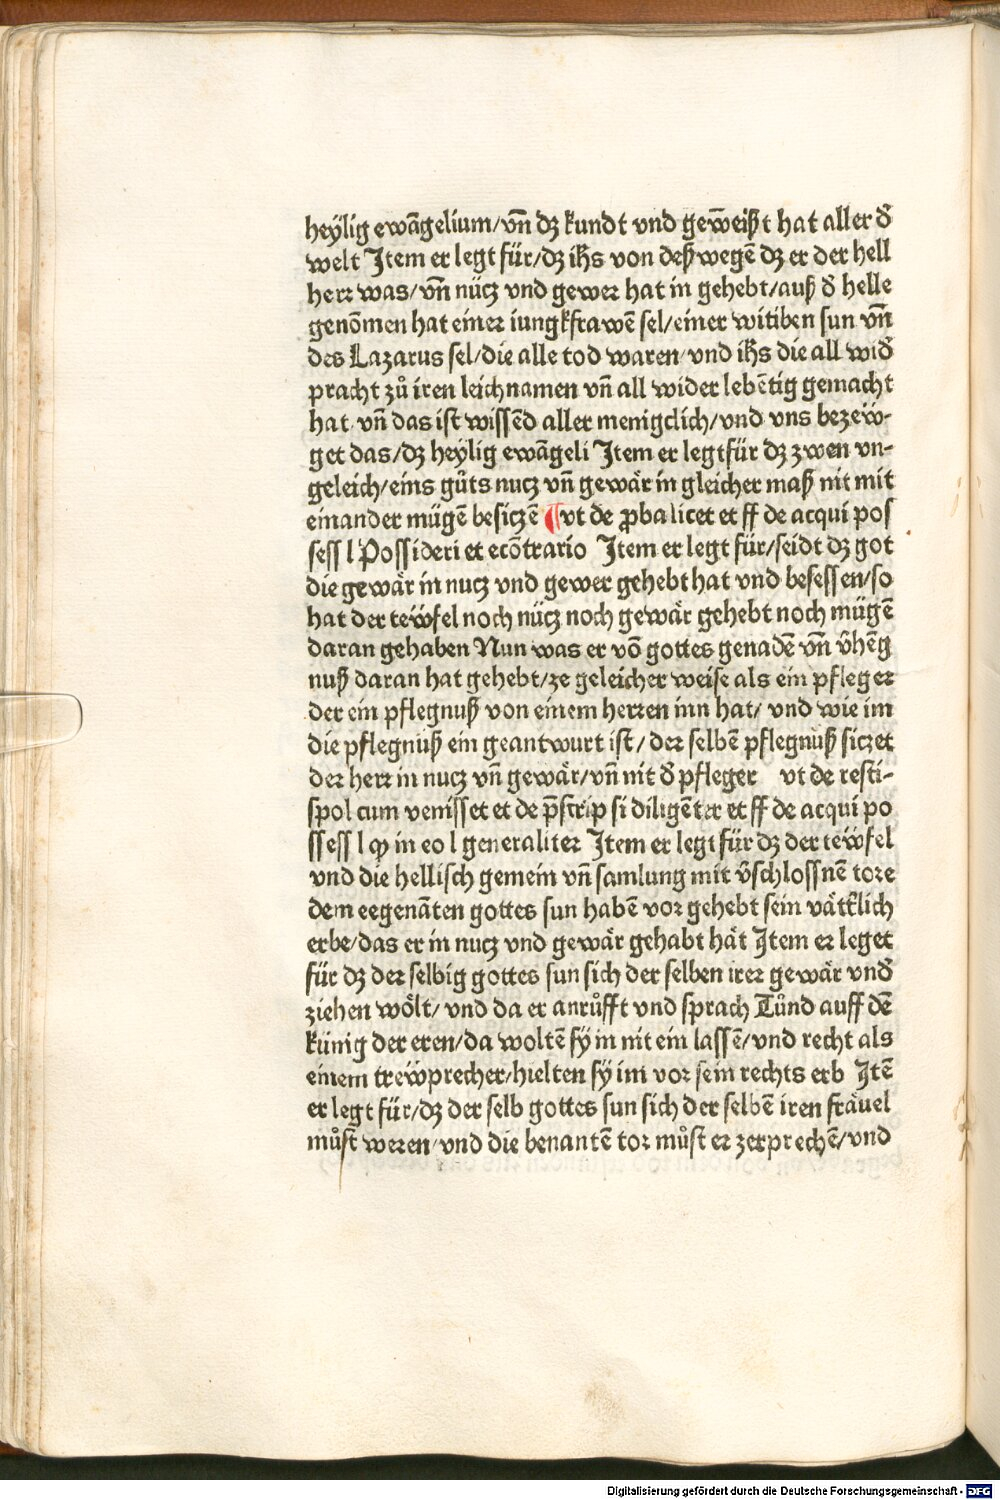 heÿlig ewāgelium/vn̄ dz kundt vnd gew̄eißt hat aller d̄
welt Item er legt für/dz ih̄s von deßwegē dz er der hell
herr was/vn̄ nücz vnd gewer hat in gehebt/auß d̄ helle
genōmen hat einer iungkfrawē sel/einer witiben sun vn̄
des Lazarus sel/die alle tod waren/vnd ih̄s die all wid̄
pracht zů iren leichnamen vn̄ all wider lebētig gemacht
hat vn̄ das ist wissēd aller menigclich/vnd vns bezeẅ-
get das/dz heÿlig ewāgeli Item er legt für dz zwen vn-
geleich/eins gůts nucz vn̄ gewär in gleicher maß nit mit
einander mügē besiczē ¶vt de ꝓba licet et ff de acqui pos
sess l Possideri et ecōtrario Item er legt für/seidt dz got
die gewär in nucz vnd gewer gehebt hat vnd besessen/so
hat der teẅfel noch nücz noch gewär gehebt noch mügē
daran gehaben Nun was er vō gottes genadē vn̄ v̄hēg
nuß daran hat gehebt/ze geleicher weise als ein pfleger
der ein pflegnuß von einem herren inn hat/ vnd wie im
die pflegnuß ein geantwurt ist/ der selbē pflegnuß siczet
der herr in nucz vn̄ gewär/vn̄ nit d̄ pfleger vt de resti-
spol cum venisset et de p̄scrip si diligēter et ff de acqui po
ssess l ꝙ in eo l generaliter Item er legt für dz der teẅfel
vnd die hellisch gemein vn̄ samlung mit v̄schlossnē tore
dem eegenāten gottes sun habē vor gehebt sein vätt̄lich
erbe/das er in nucz vnd gewär gehabt hät Item er leget
für dz der selbig gottes sun sich der selben irer gewär vnd̄
ziehen wölt/ vnd da er anrůfft vnd sprach Tůnd auff dē
künig der eren/da woltē sÿ in nit ein lassē/vnd recht als
einem treẅprecher/hielten sÿ im vor sein rechts erb Itē
er legt für/dz der selb gottes sun sich der selbē iren fräuel
můst weren/vnd die benantē tor můst er zerprechē/vnd
Digitalisierung gefördert durch die Deutsche Forschungsgemeinschaft - DFG